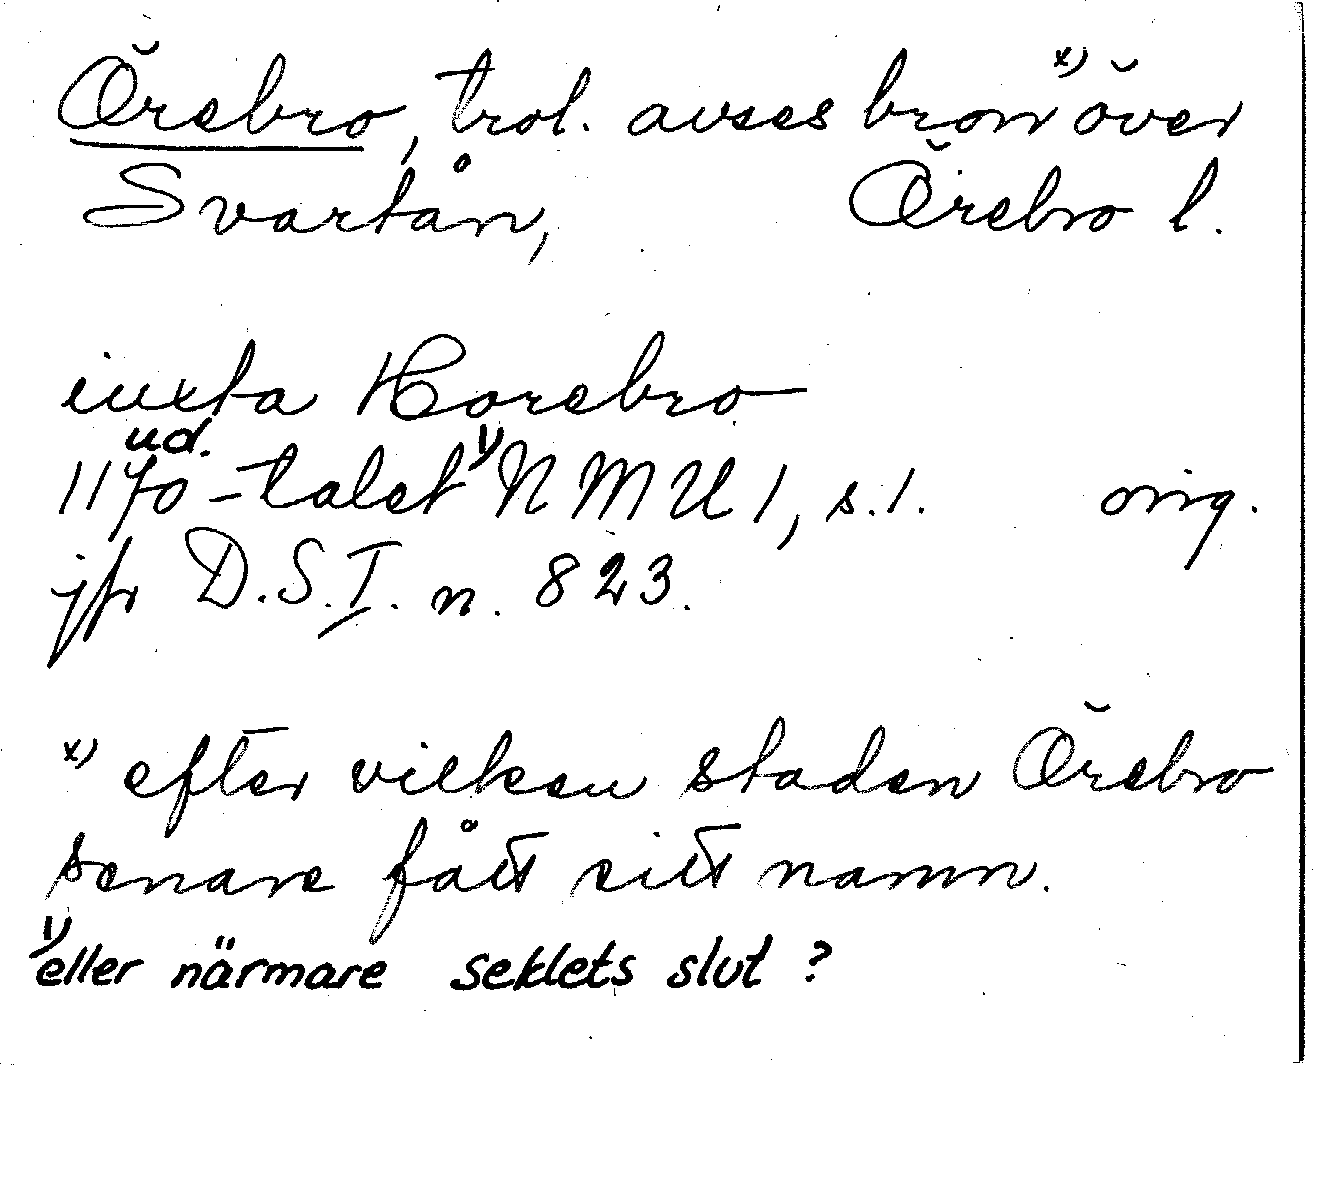 Örebro, trol. avses bron x) över
Svartån, Örebro l.
iuxta Horebro
ud.
1170-talet 1) NMU 1, s. 1. orig.
jfr D.S. I. n. 823.
x) efter vilken staden Örebro
senare fått sitt namn.
1) eller närmare seklets slut?